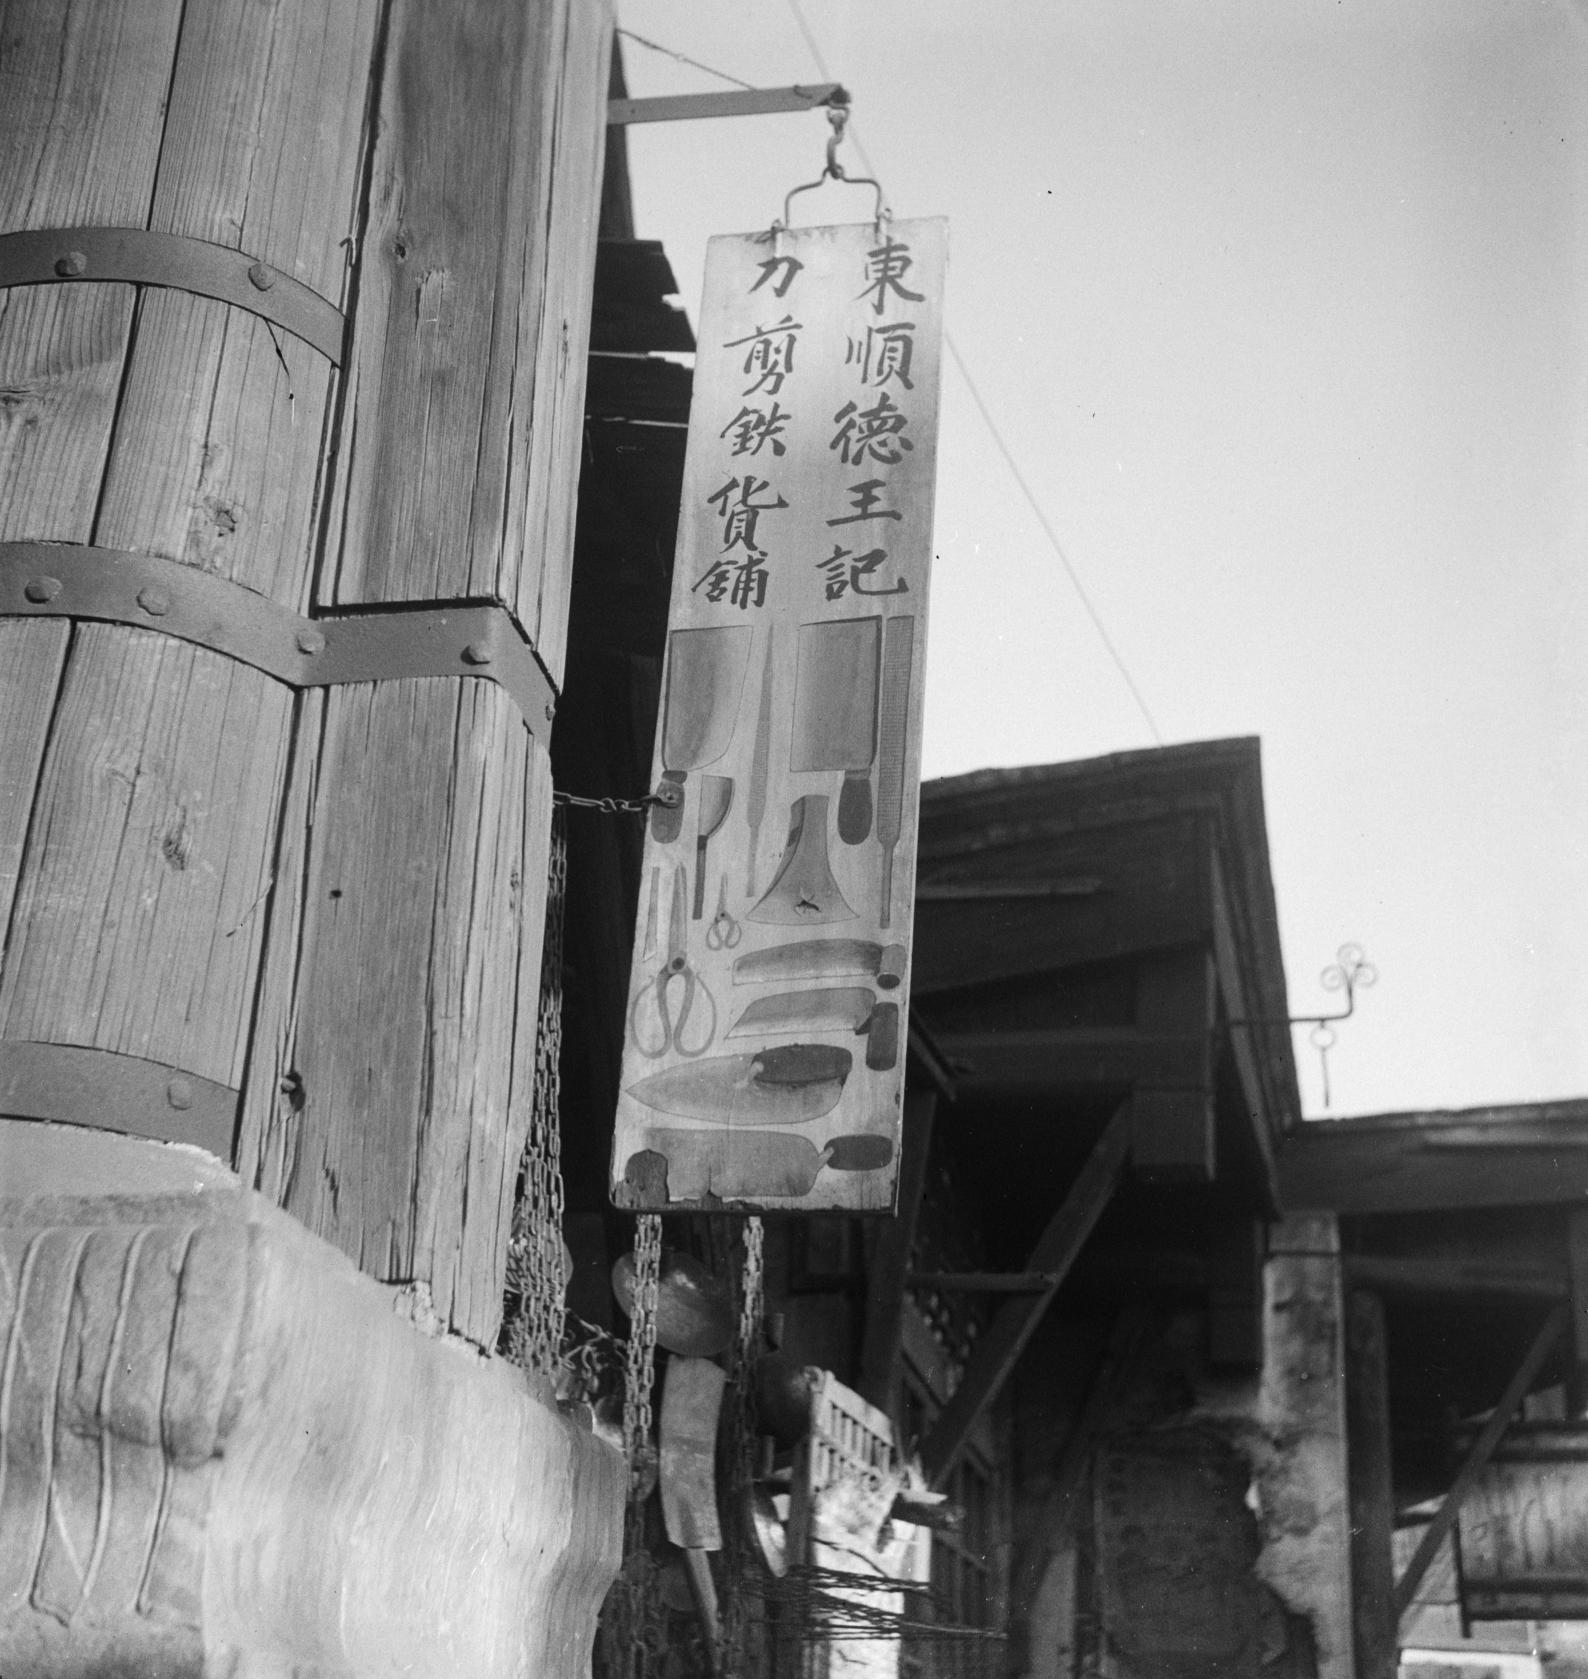 東順德王記
刀剪鉄貨舖